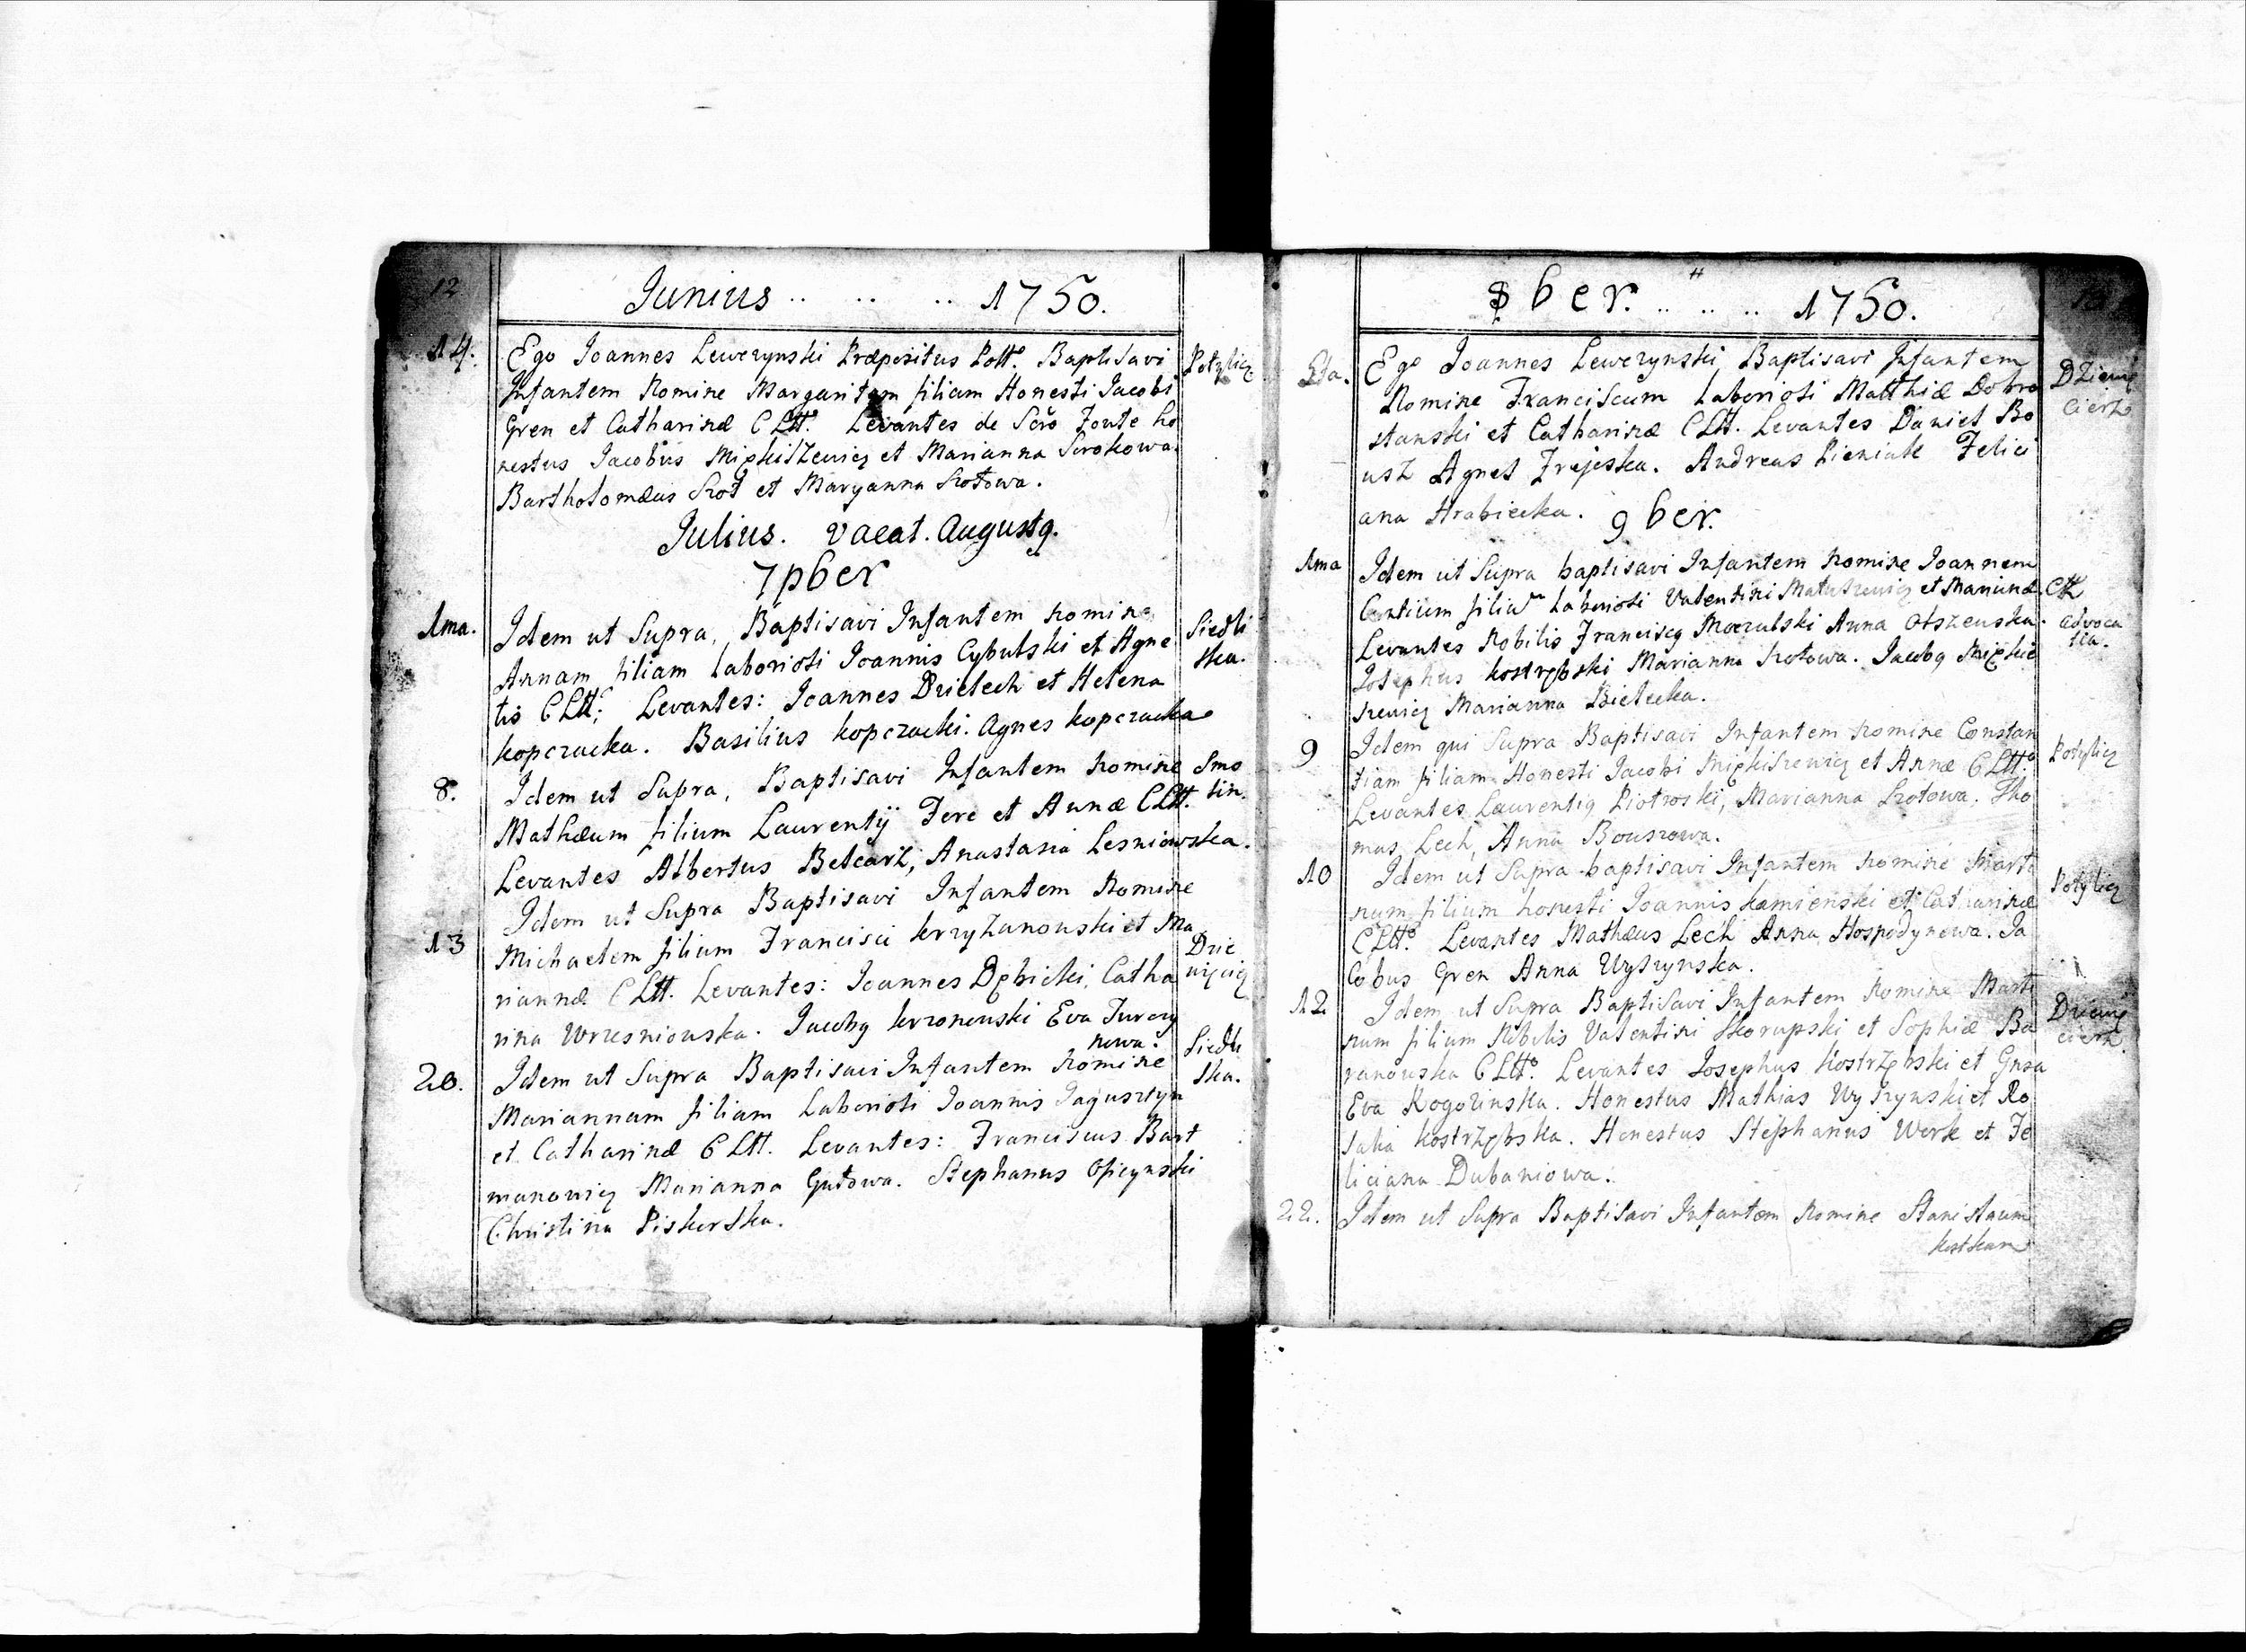 12
Junius .. .. .. 1750.
14. Ego Joannes Lewczynski Præpositus Pottᵒ. Baptisavi Potylicz
Infantem Nomine Margaritam filiam Honesti Jacobi
Gren et Catharinæ C Lttᵒ. Levantes de Scro Fonte ho
nestus Jacobus Mişkiszewicz et Marianna Srokowa.
Bartholomæus Srot et Maryanna Srotowa.
Julius. vacat. Augustq.
7pber
1ma. Idem ut Supra, Baptisavi Infantem nomine Siedli
Annam filiam Laboriosi Joannis Cybulski et Agne ska.
tis C Ltt; Levantes: Joannes Dzielech et Helena
kopczacka. Basilius kopczacki. Agnes kopczacka
8. Idem ut Supra, Baptisavi Infantem Nomine Smo
Mathæum filium Laurentij Fere et Annæ C Ltt. lin.
Levantes Albertus Belcarz, Anastasia Lesniowska.
Idem ut Supra Baptisavi Infantem Nomine
13 Michaelem filium Francisci krzyzanowski et Ma Dzie
riannæ C Ltt. Levantes: Joannes Dębicki, Catha
rina Wrzesniowska. Jacobq krzonowski Eva Turczy
nowa.
20. Idem ut Supra Baptisavi Infantem Nomine Siedli
Mariannam filiam Laboriosi Joannis Jagusztyn ska.
et Catharinæ C Ltt. Levantes: Franciscus Bart
manowicz Marianna Gutowa. Stephanus Opicynski
Christina Piskorska.
8ber. .. .. .. 1750.
Ego Joannes Lewczynski Baptisavi Infantem
Nomine Franciscum Laboriosi Matthiæ Dobro
stanski et Catharinæ C Ltt. Levantes Daniel Bo
usz Agnes Frejeska. Andreas Pieniak Felici
ana Hrabiecka. 9ber.
1ma Idem ut Supra baptisavi Infantem Nomine Joannem
Cantium filium Laboriosi Valentini Matuszewicz et Mariannæ. C Ltt
Levantes Nobilis Franciscq Moczulski Anna Olszewska. advoca
Josephus kostrzębski Marianna Srotowa. Jacobq Mişkie tia.
szewicz Marianna Bielecka.
9 Idem qui Supra Baptisavi Infantem Nomine Constan Potylicz
tiam filiam Honesti Jacobi Mişkiszewicz et Annæ C Lttᵒ.
Levantes Laurentiq Piotroski, Marianna Srotowa. Tho
mas Lech, Anna Bouszowa.
10 Idem ut Supra baptisavi Infantem Nomine Marti Potylicz
num filium honesti Joannis kamienski et Catharinæ
C Lttᵒ. Levantes Mathæus Lech Anna Hospodynowa. Ja
cobus Gren Anna Wyszynska.
12 Idem ut Supra Baptisavi Infantem Nomine Marti
num filium Nobilis Valentini Skorupski et Sophiæ Ba
ranowska C Lttᵒ. Levantes Josephus kostrzębski et Gnsa
Eva Rogozinska. Honestus Mathias Wyszynski et Ro
salia kostrzębska. Honestus Stephanus Werk et Fe
liciana Dubaniowa.
22. Idem ut Supra Baptisavi Infantem Nomine Stanislaum
kostkam